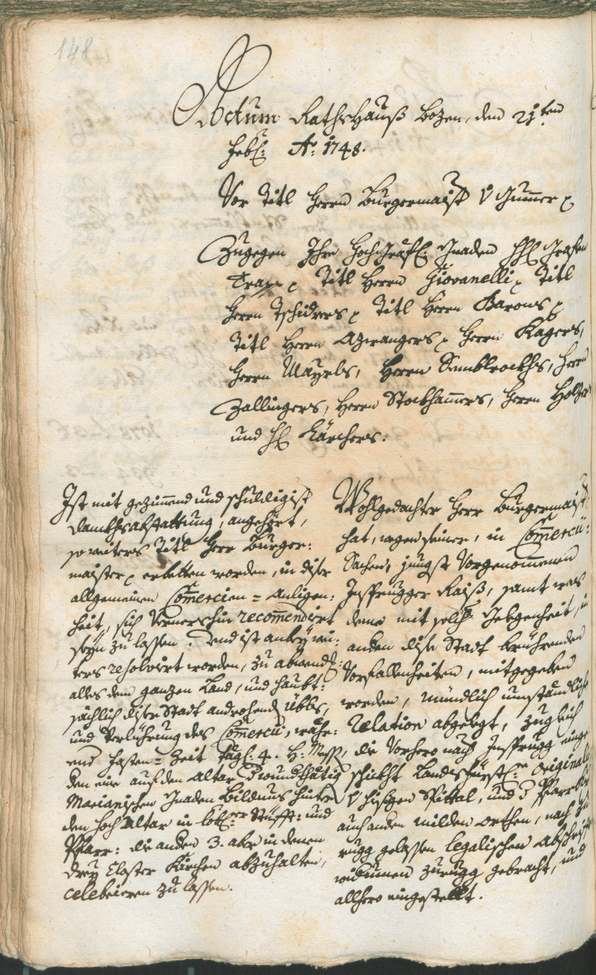 148
Actum Rathshauß Bozen, den 21ten
Feb: Ao: 1748.
Vor Titl Herrn Burgermaist: v Gummer
Zugegen Ihro Hochgräfl: Gnaden Grafen
Trapp Titl Herrn Giovanelli, Titl
Herrn Tschidrers, Titl Herrn Barons
Titl Herrn Azwangers, Herrn Kagers,
Herrn Mayrls, Herrn Sembkrockhs, Herrn
Zallingers, Herrn Stockhamers, Herrn Holzer
und H: Kärchers:
Ist mit gezimend und schuldigist
Dankhsabstattung, angehört,
so weiters Titl Herr Burger:
maister erbetten worden, in diser
allgemeinen Comercien = Anligen:
heit, sich verners hin recomendirt
seyn zu lassen. Und ist anbey wei:
ters resolvirt worden, zu abwend:
alles dem ganzen Land, und haubt:
sächlich diser Statt androhend Übls,
und Verlührung des Comercii, wäh:
end Fasten = Zeit tägl: 4. H: Mess,
den eine auf den Altar
Marianischen Gnaden Bildnus hinter
den Hoch Altar in Stüfft: und
Pfarr: die andern 3. aber in denen
drey Closter Kirchen abzuhalten,
celebrieren zu lassen.
Wohlgedachter Herr Burgermaist:
hat, wegen seiner, in Comercii:
Sachen, jüngst vorgenomenen
Insprugger Raiß, samt was
deme mit solch Gelegenheit, in
anden dise Statt berührenden
Vorfallenheiten, mitgegeben
worden, mündlich umständlich
Relation abgelegt, zugleich
die vorhero nach Insprugg einge
schickht Landsfürstl: Original
v hiesigen Spittal, und Pfarr
auch anden milden Orthen, nach
rugg gelassen legalischen Abschrift
widerumen zurugg gebracht, und
allhero eingestellt.